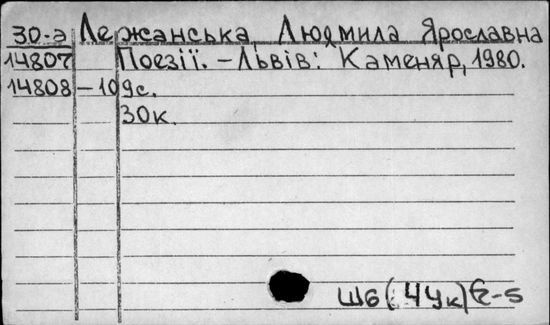 30-а Лежанська, Людмила Ярославна
14807 Поезії. – Львів: Каменяр, 1980.
14808 – 109с.
30к.
Ш6(4Ук)6-5